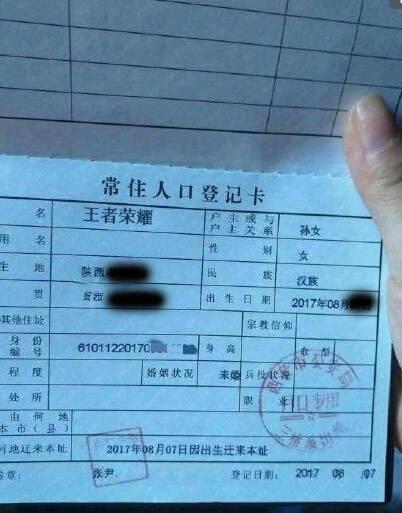 常住人口登记卡
名 王者荣耀 户主或与户主关系 孙女
用名 性别 女
生地 陕西 民族 汉族
贯 出生日期 2017年08月
其他住址 宗教信仰
身份编号 61011220170 身高 血型
程度 婚姻状况 未婚 兵役状况
处所 职业
由何地本市(县)
何地迁来本址 2017年08月07日因出生迁来本址
签章: 张尹 登记日期: 2017 08 07